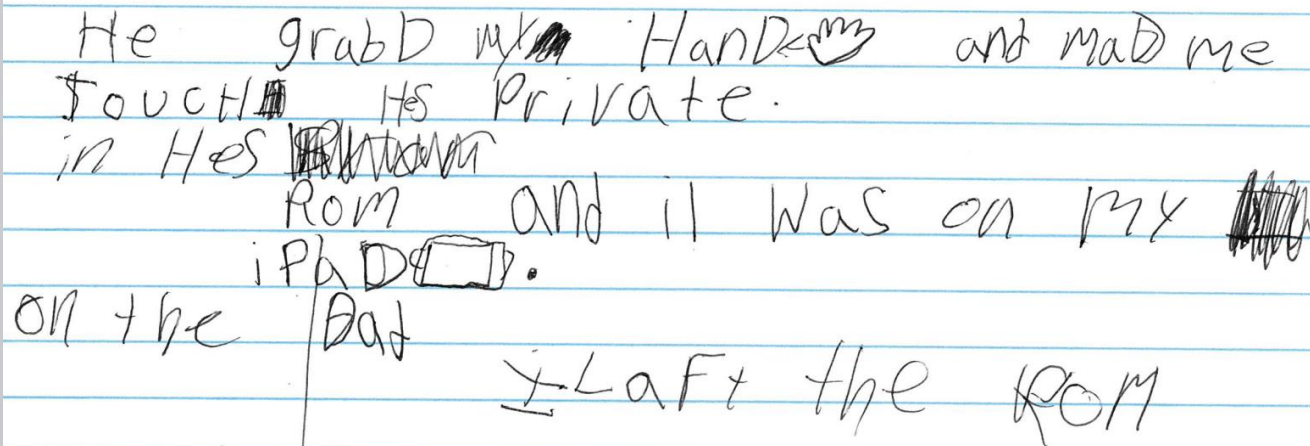 He grabD my HanD and maD me
touch Hes Private.
in Hes
Rom and it was on my
iPaD.
on the Bad
I Laft the Rom